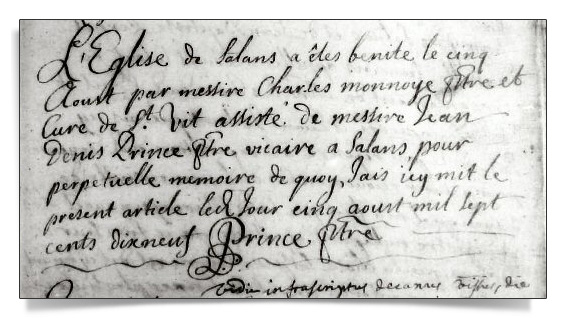 L'Eglise de Salans a êtes benite le cinq
Aoust par messire Charles monnoye ptre et
Cure de St. Vit assisté de messire Jean
Denis Prince ptre vicaire a Salans pour
perpetuelle memoire de quoy Jais icy mit le
present article led Jour cinq aoust mil sept
cents dixneuf Prince ptre
infrascriptus decanus